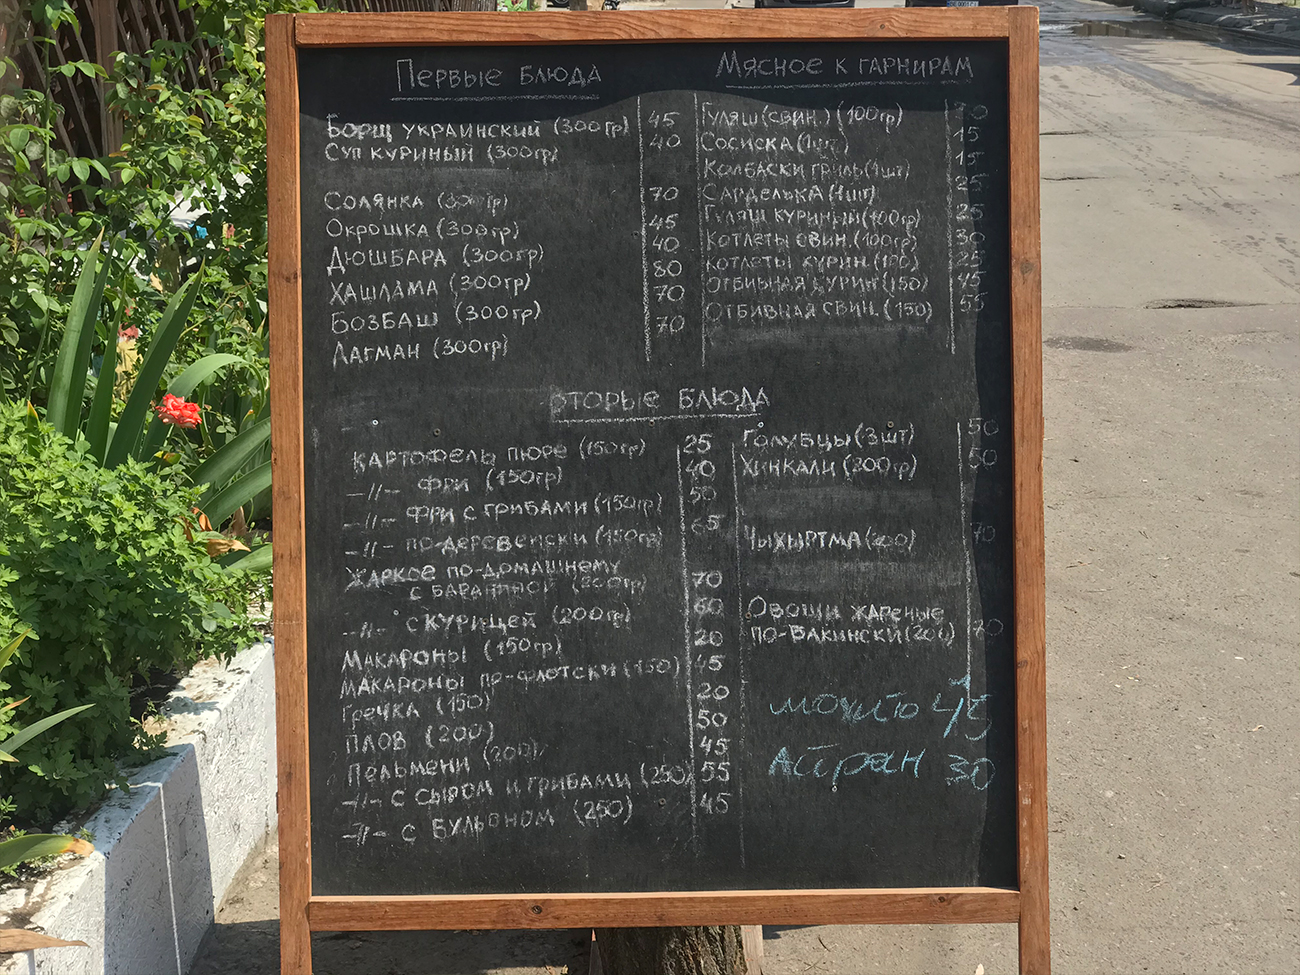 Первые блюда
Борщ украинский (300гр) 45
Суп куриный (300гр) 40
Солянка (300гр) 70
Окрошка (300гр) 45
Дюшбара (300гр) 40
Хашлама (300гр) 80
Бозбаш (300гр) 70
Лагман (300гр) 70
Мясное к гарнирам
Гуляш (свин.) (100гр) 30
Сосиска (1шт) 15
Колбаски гриль (1шт) 15
Сарделька (1шт) 25
Гуляш куриный (100гр) 25
Котлеты свин. (100гр) 30
Котлеты курин. (100) 25
Отбивная курин (150) 45
Отбивная свин. (150) 55
вторые блюда
Картофель пюре (150гр) 25
-//- фри (150гр) 40
-//- фри с грибами (150гр) 50
-//- по-деревенски (150гр) 65
Жаркое по-домашнему
с бараниной (200гр) 70
-//- с курицей (200гр) 60
Макароны (150гр) 20
Макароны по-флотски (150) 45
Гречка (150) 20
Плов (200) 50
Пельмени (200) 45
-//- с сыром и грибами (250) 55
-//- с бульоном (250) 45
Голубцы (3шт) 50
Хинкали (200гр) 50
Чыхыртма (200) 70
Овощи жареные
по-бакински (200) 70
мохито 45
Айран 30